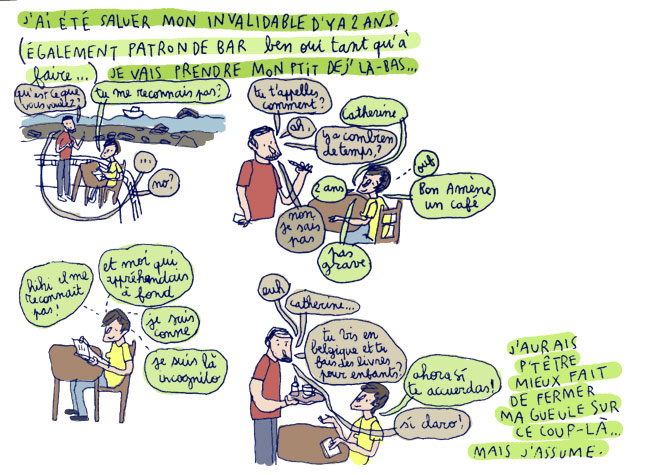 J'AI ÉTÉ SALUER MON INVALIDABLE D'Y A 2 ANS.
(ÉGALEMENT PATRON DE BAR ben oui tant qu'à
faire...) JE VAIS PRENDRE MON P'TIT DEJ' LÀ-BAS...
qu'est ce que
vous voulez?
tu me reconnais pas?
...
no?
tu t'appelles
comment?
ah.
Catherine
y a combien
de temps?
2 ans
ouf
Bon Amène
un café
non
je sais
pas
pas
grave
hihi il me
reconnait
pas!
et moi qui
appréhendais
à fond
je suis
conne
je suis là
incognito
euh
Catherine...
tu vis en
belgique et tu
fais des livres
pour enfants?
ahora sí
te acuerdas!
si claro!
J'AURAIS
P'TÊTRE
MIEUX FAIT
DE FERMER
MA GUEULE SUR
CE COUP-LÀ...
MAIS J'ASSUME.